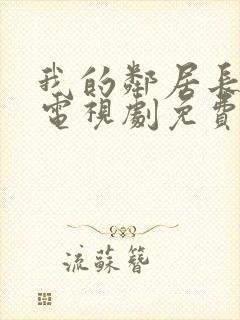 我的鄰居長
電視劇免費
流蘇簪